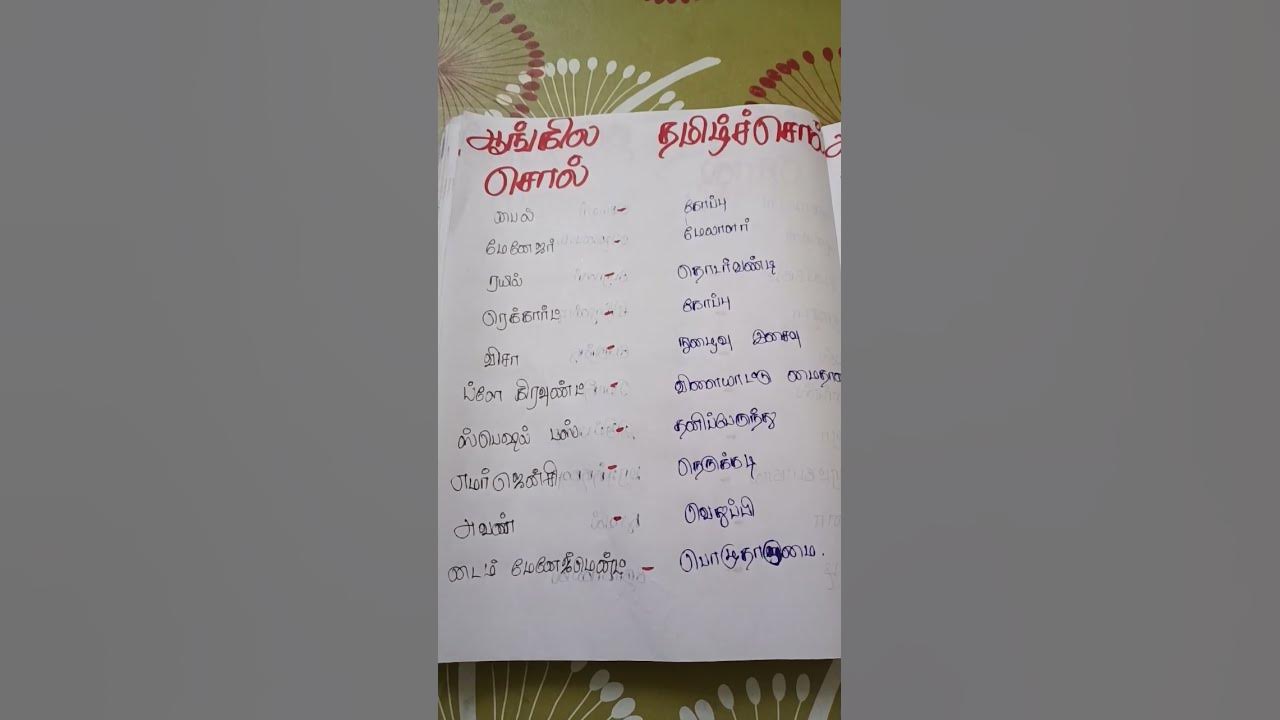 ஆங்கில தமிழ்ச்சொல்
சொல்
பைல் - கோப்பு
மேனேஜர் - மேலாளர்
ரயில் - தொடர்வண்டி
ரெக்கார்ட் - கோப்பு
விசா - நுழைவு இசைவு
ப்ளே கிரவுண்ட் - விளையாட்டு
ஸ்பெஷல் பஸ் - தனிப்பேருந்து
எமர்ஜென்சி - நெருக்கடி
அவண் - வெதுப்பி
டைம் மேனேஜ்மெண்ட் -